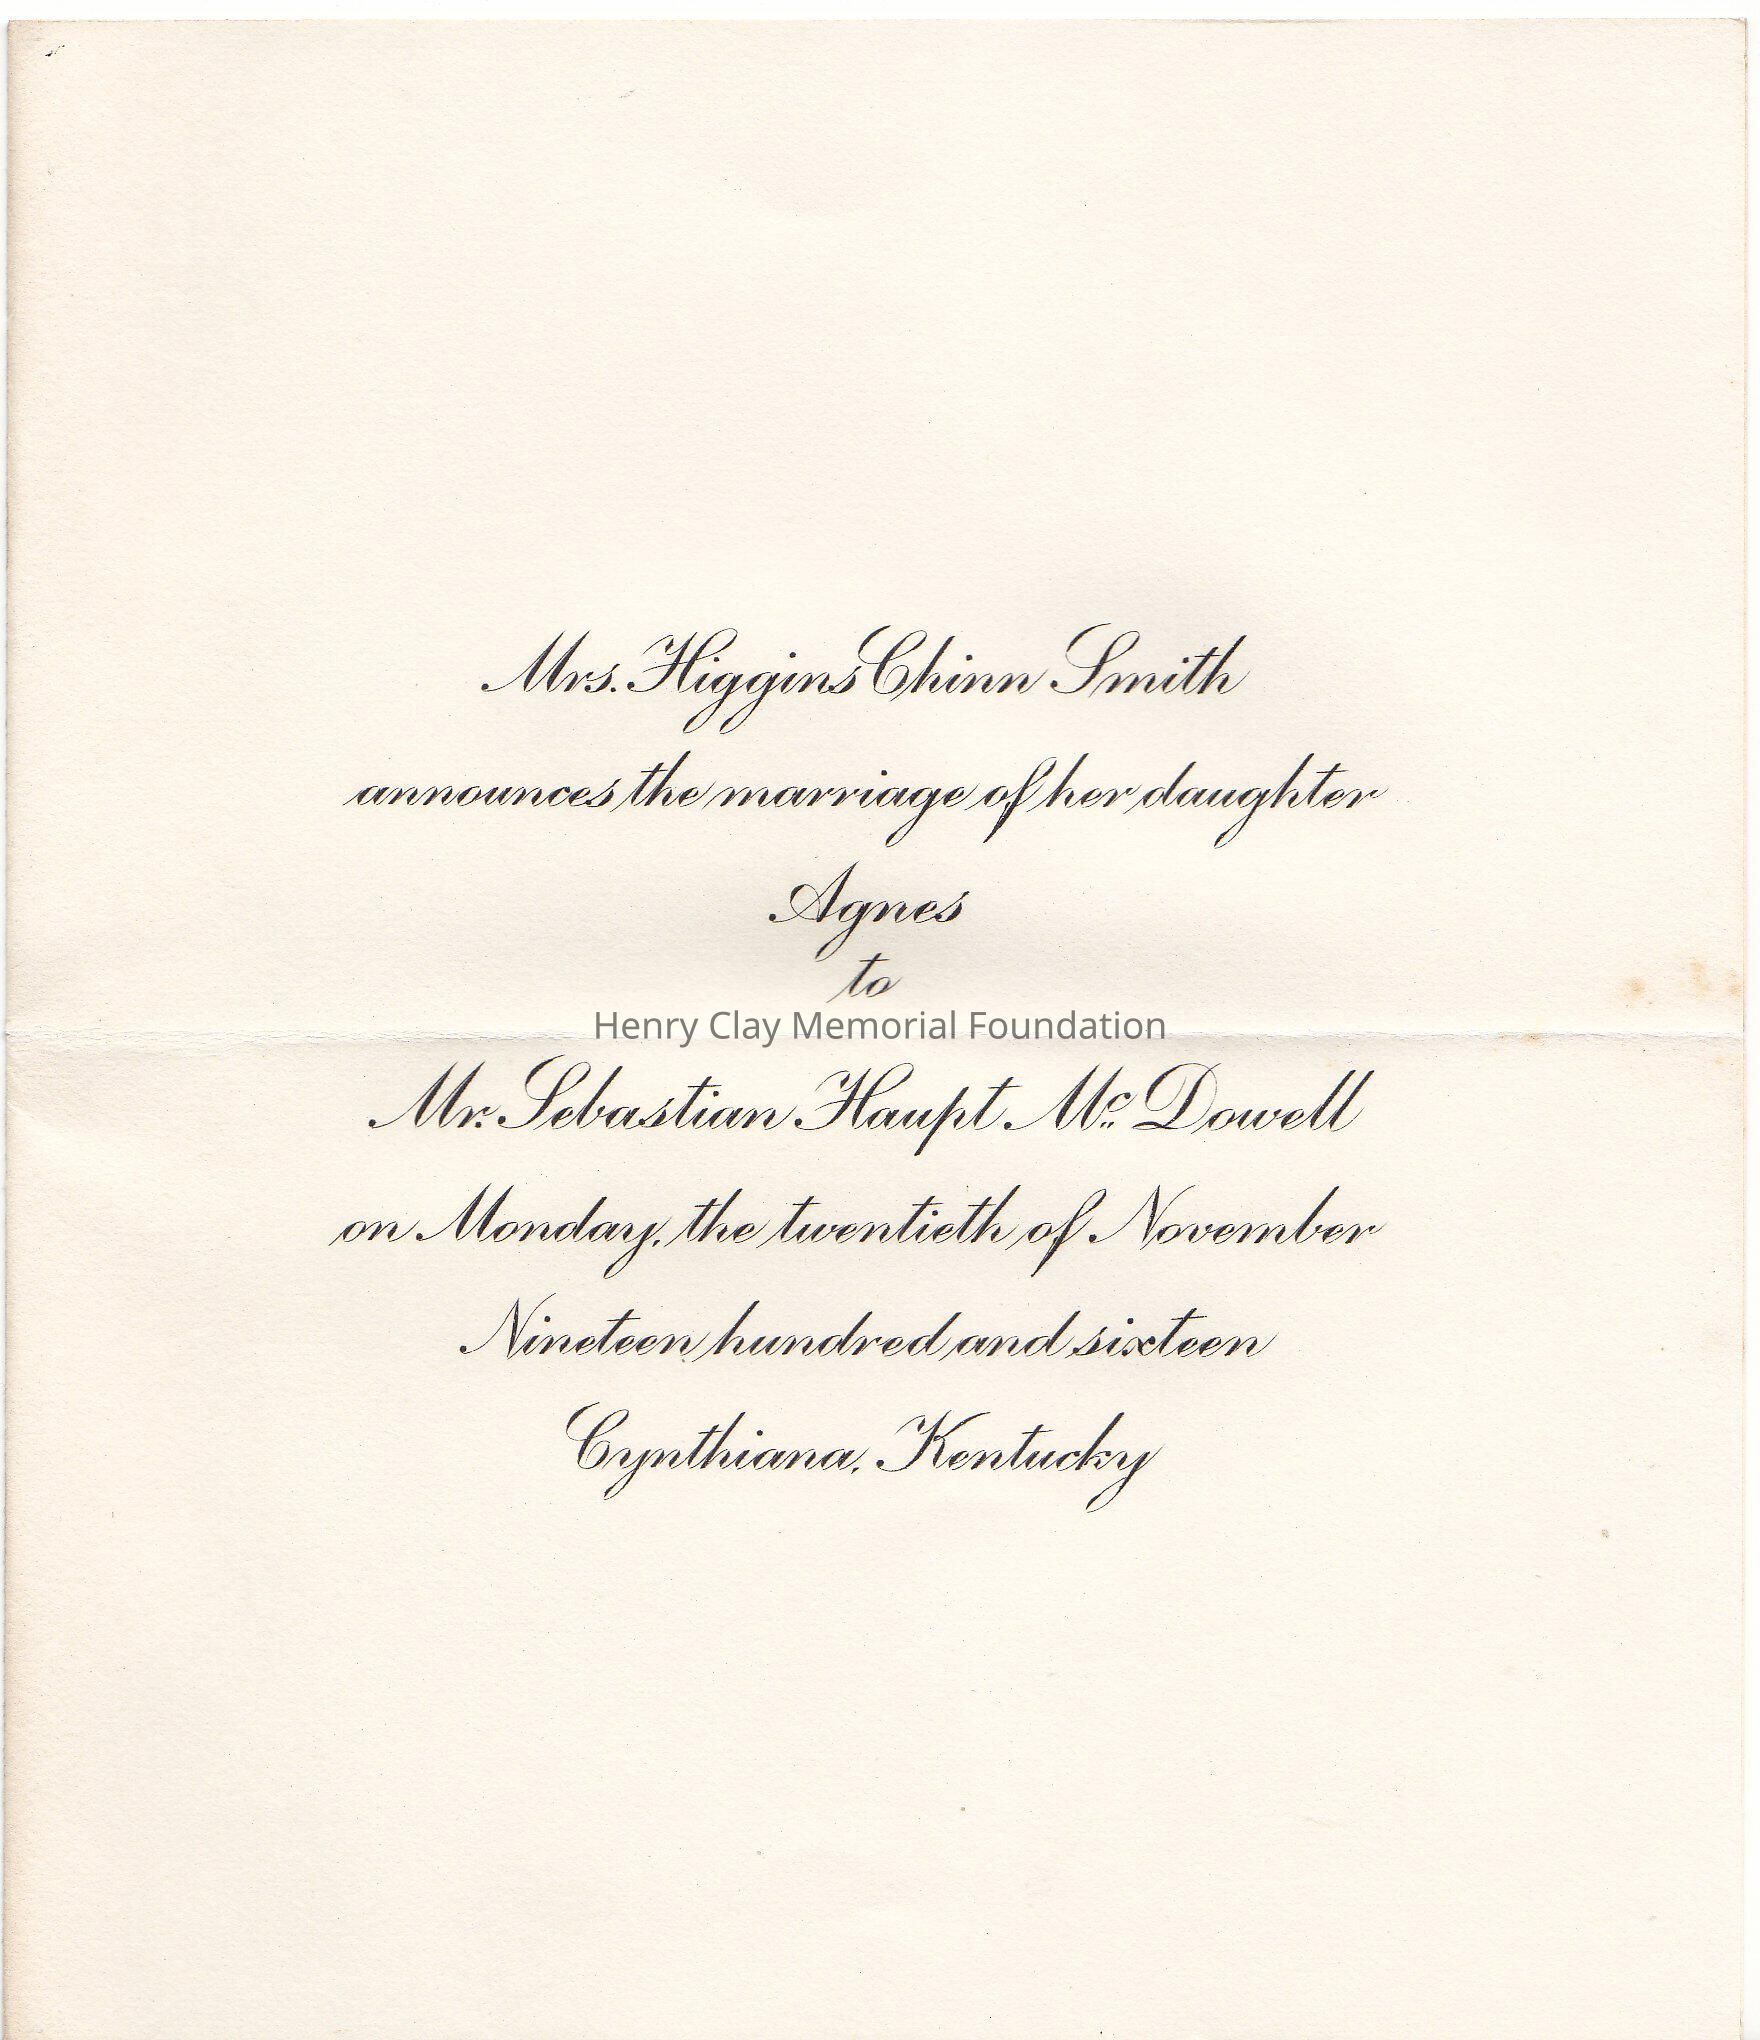 Mrs. Higgins Chinn Smith
announces the marriage of her daughter
Agnes
to
Henry Clay Memorial Foundation
Mr. Sebastian Haupt Mc Dowell
on Monday, the twentieth of November
Nineteen hundred and sixteen
Cynthiana, Kentucky